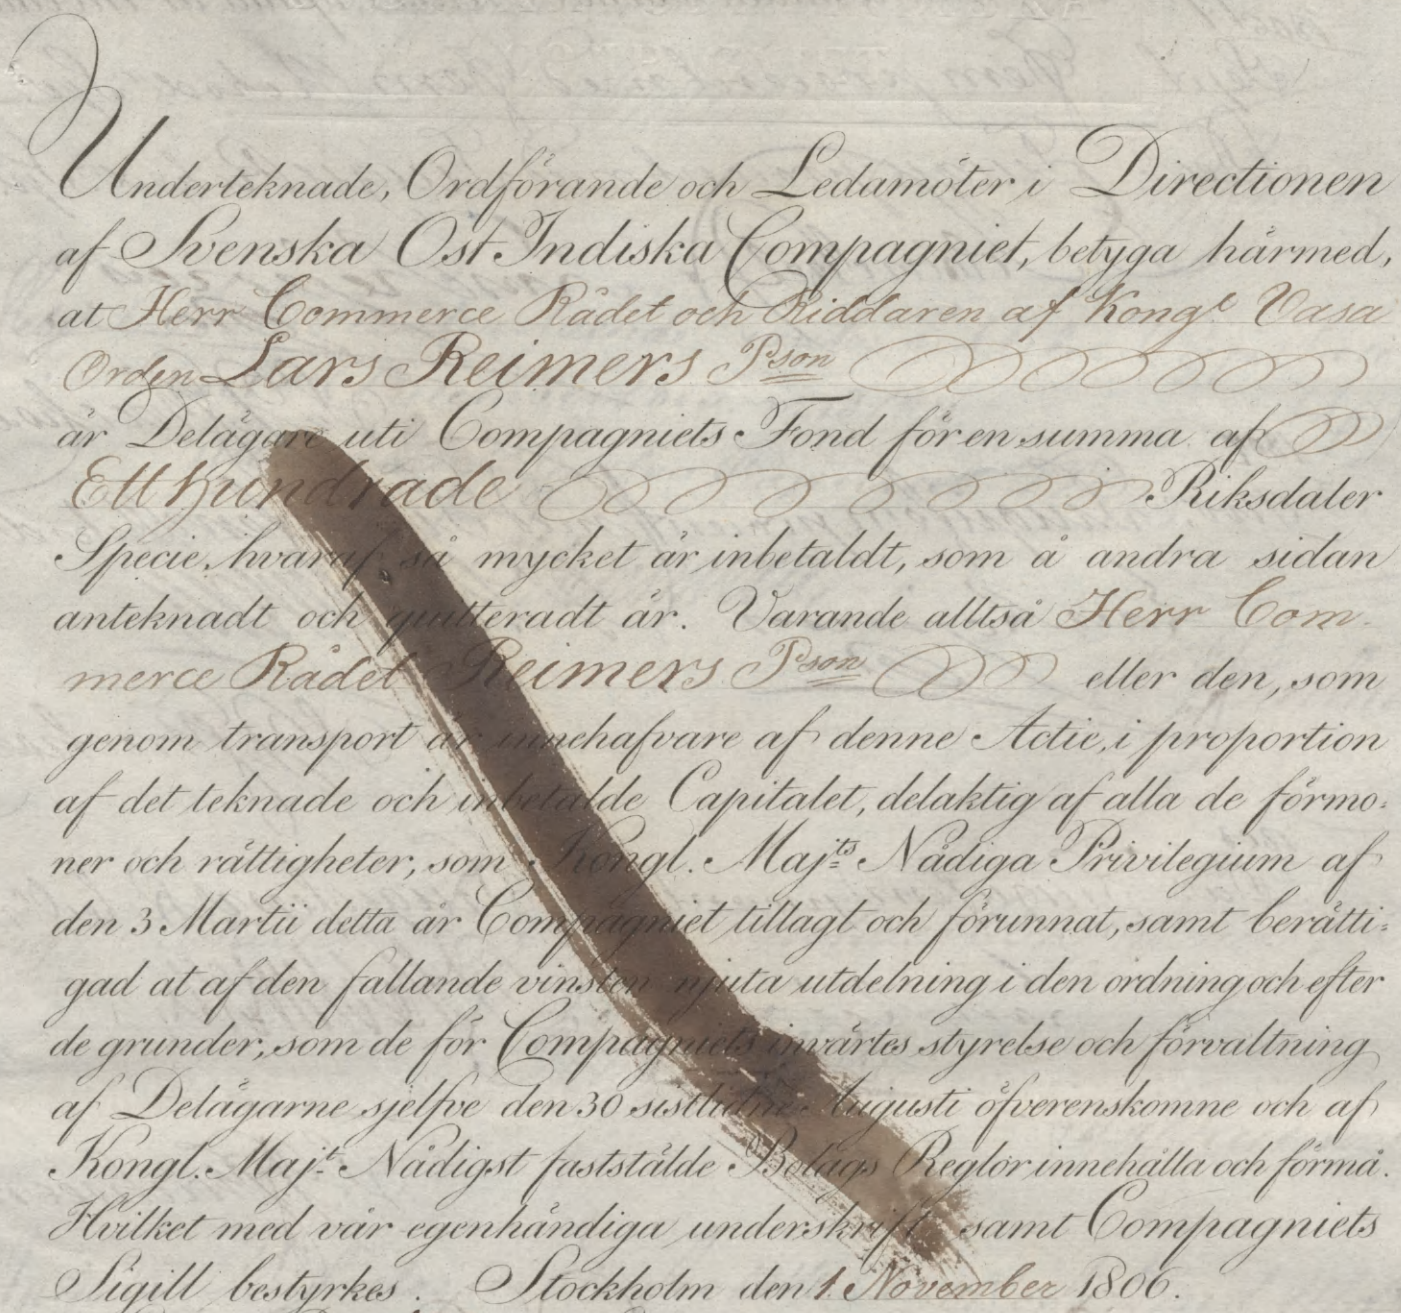 Underteknade, Ordförande och Ledamöter i Directionen
af Svenska Ost Indiska Compagniet, betyga härmed,
at Herr Commerce Rådet och Riddaren af Kongl Vasa
Orden Lars Reimers Pson
är Delägare uti Compagniets Fond för en summa af
Ett hundrade Riksdaler
Specie, hvaraf så mycket är inbetaldt, som å andra sidan
anteknadt och quitteradt är. Varande alltså Herr Com-
merce Rådet Reimers Pson eller den, som
genom transport är innehafvare af denne Actie, i proportion
af det teknade och inbetalde Capitalet, delaktig af alla de förmo:
ner och rättigheter, som Kongl. Majts Nådiga Privilegium af
den 3 Martii detta år Compagniet tillagt och förunnat, samt berätti:
gad at af den fallande vinsten njuta utdelning i den ordning och efter
de grunder, som de för Compagniets invärtes styrelse och förvaltning
af Delägarne sjelfve den 30 sistlidne Augusti öfverenskomne och af
Kongl. Majt Nådigst faststälde Bolags Reglor innehålla och förmå.
Hvilket med vår egenhändiga underskrift samt Compagniets
Sigill bestyrkes. Stockholm den 1 November 1806.